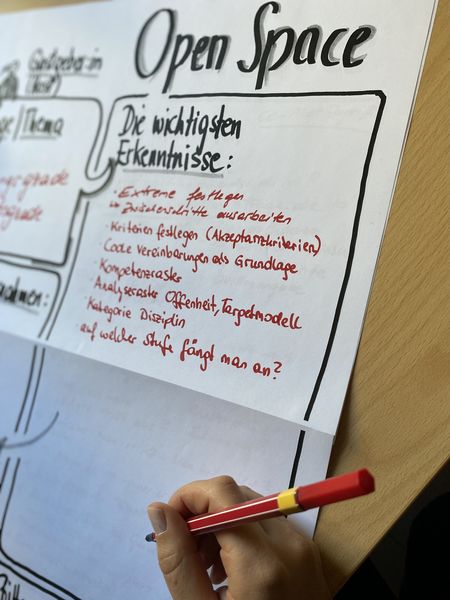 Open Space
Gastgeber:in
(Host)
/Thema
Die wichtigsten
Erkenntnisse:
· Extreme festlegen
↳ Zwischenschritte ausarbeiten
· Kriterien festlegen (Akzeptanzkriterien)
· Coole Vereinbarungen als Grundlage
· Kompetenzraster
· Analyseraster Offenheit, Targetmodell
· Kategorie Disziplin
· auf welcher Stufe fängt man an?